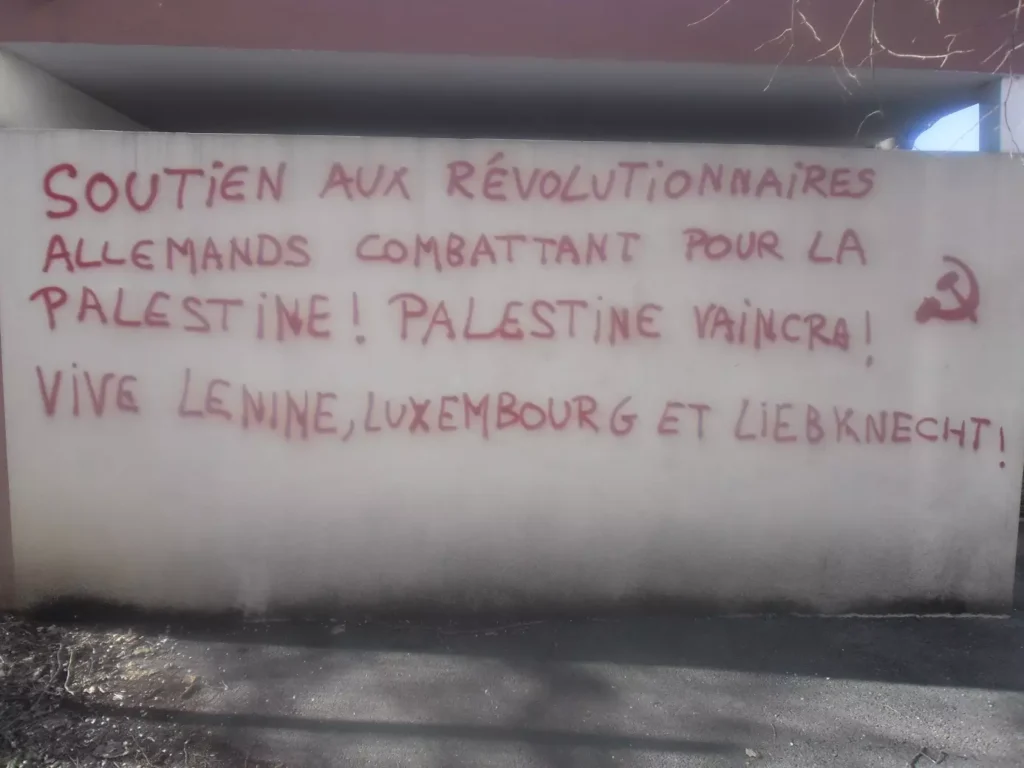 SOUTIEN AUX RÉVOLUTIONNAIRES
ALLEMANDS COMBATTANT POUR LA
PALESTINE! PALESTINE VAINCRA!
VIVE LENINE, LUXEMBOURG ET LIEBKNECHT!